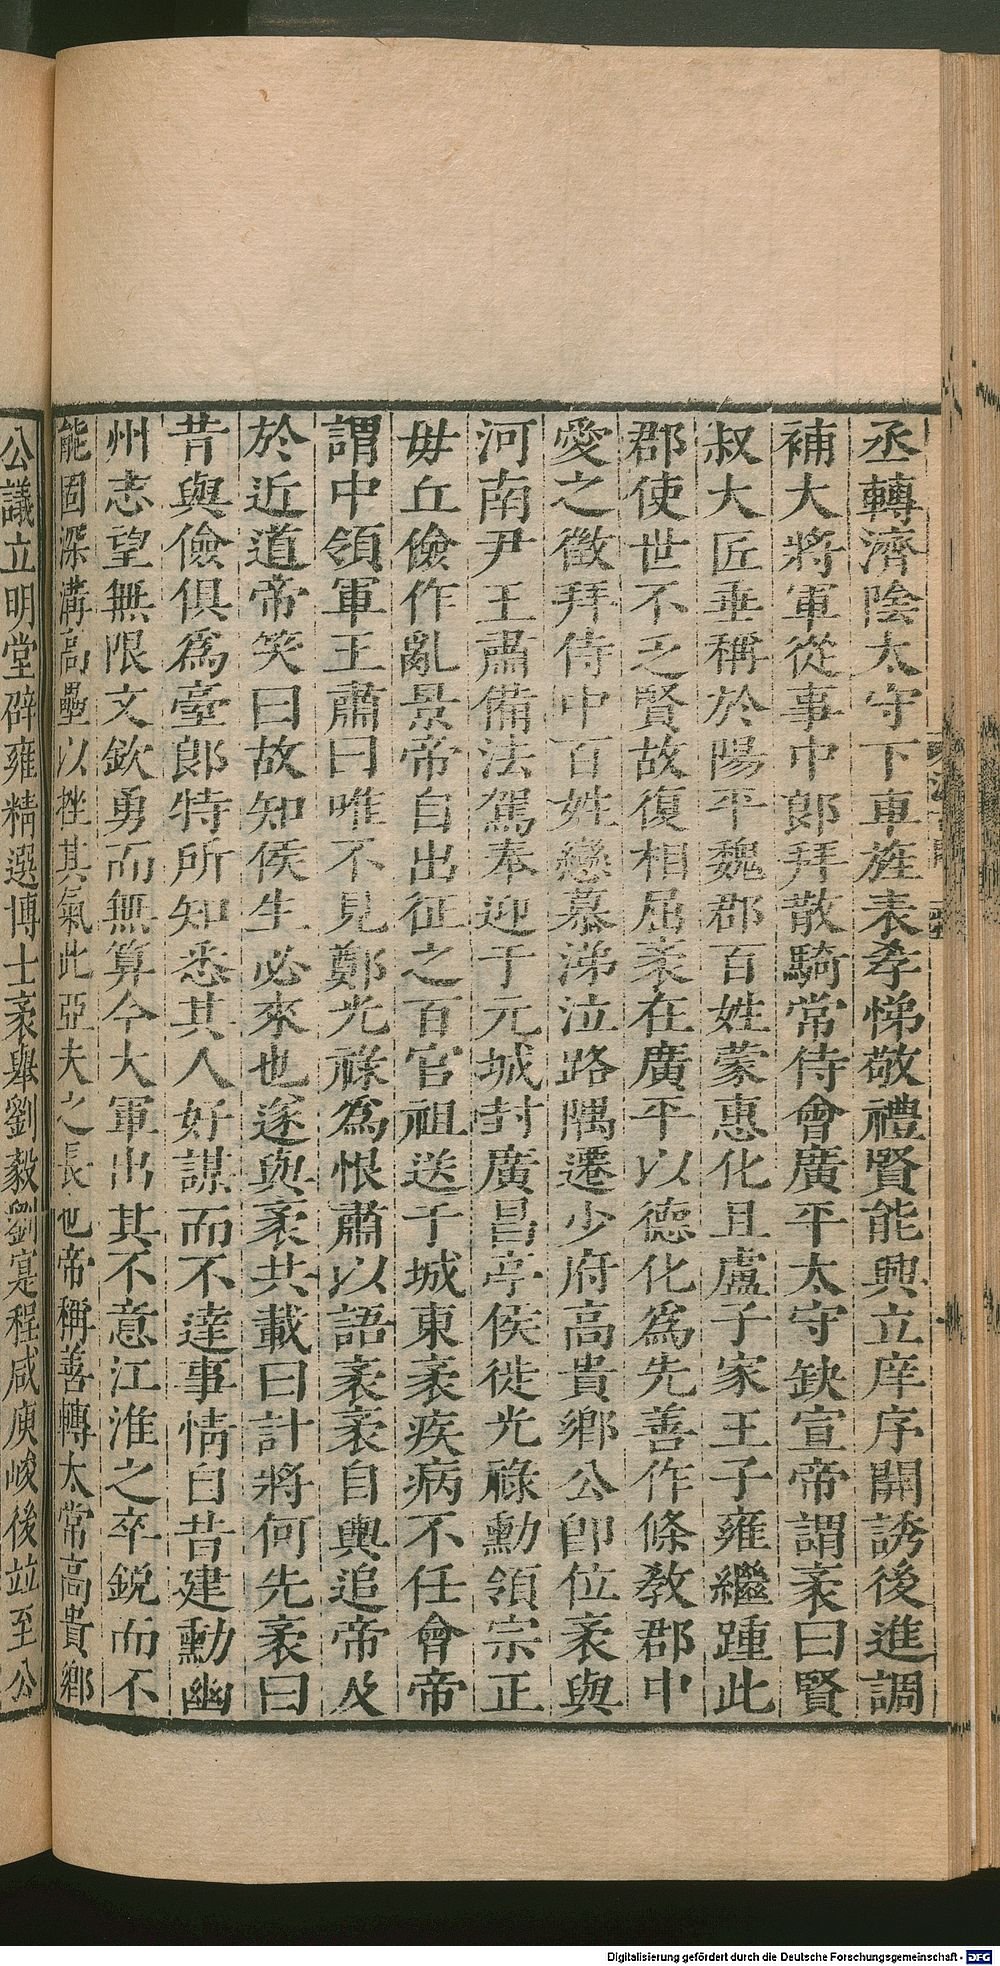 丞轉濟陰太守下車旌表孝悌敬禮賢能興立庠序開誘後進調
補大將軍從事中郎拜散騎常侍會廣平太守缺宣帝謂袤曰賢
叔大匠垂稱於陽平魏郡百姓蒙惠化且盧子家王子雍繼踵此
郡使世不乏賢故復相屈袤在廣平以德化爲先善作條教郡中
愛之徵拜侍中百姓戀慕涕泣路隅遷少府高貴鄉公卽位袤與
河南尹王肅備法駕奉迎于元城封廣昌亭侯徙光祿勳領宗正
毋丘儉作亂景帝自出征之百官祖送于城東袤疾病不任會帝
謂中領軍王肅曰唯不見鄭光祿爲恨肅以語袤袤自輿追帝及
於近道帝笑曰故知侯生必來也遂與袤共載曰計將何先袤曰
昔與儉俱爲臺郎特所知悉其人好謀而不達事情自昔建勳幽
州志望無限文欽勇而無算今大軍出其不意江淮之卒銳而不
能固深溝高壘以挫其氣此亞夫之長也帝稱善轉太常高貴鄉
公議立明堂辟雍精選博士袤舉劉毅劉寔程咸庾峻後竝至公
Digitalisierung gefördert durch die Deutsche Forschungsgemeinschaft - DFG